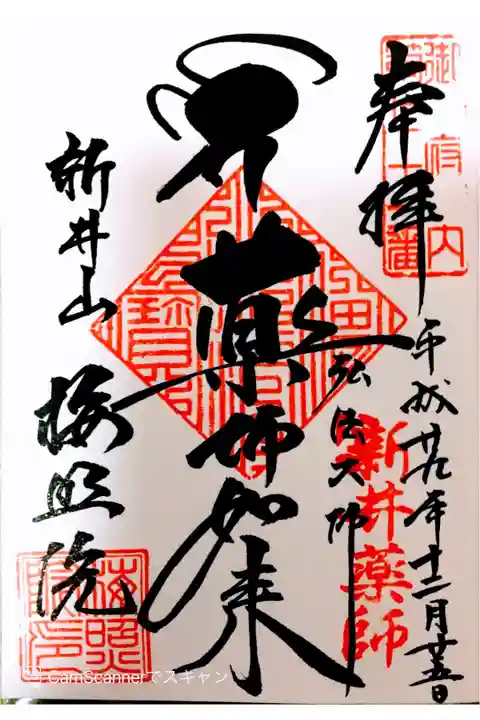 奉拝
平成廿九年十二月廿五日
新井薬師
弘法大師
薬師如来
新井山
梅照院
梅照院印
CamScannerでスキャン